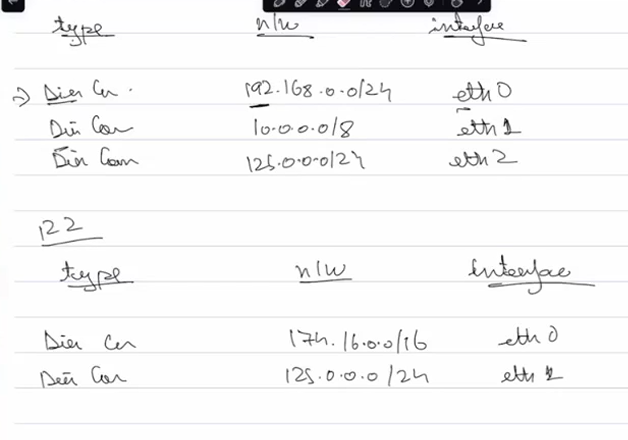 type n/w interface
⇒ Dirr Cn . 192.168.0.0/24 eth 0
Dirr Con 10.0.0.0/8 eth 1
Dirr Conn 125.0.0.0/24 eth 2
R2
type n/w interface
Dirr Cn 174.16.0.0/16 eth 0
Dirr Con 125.0.0.0/24 eth 1